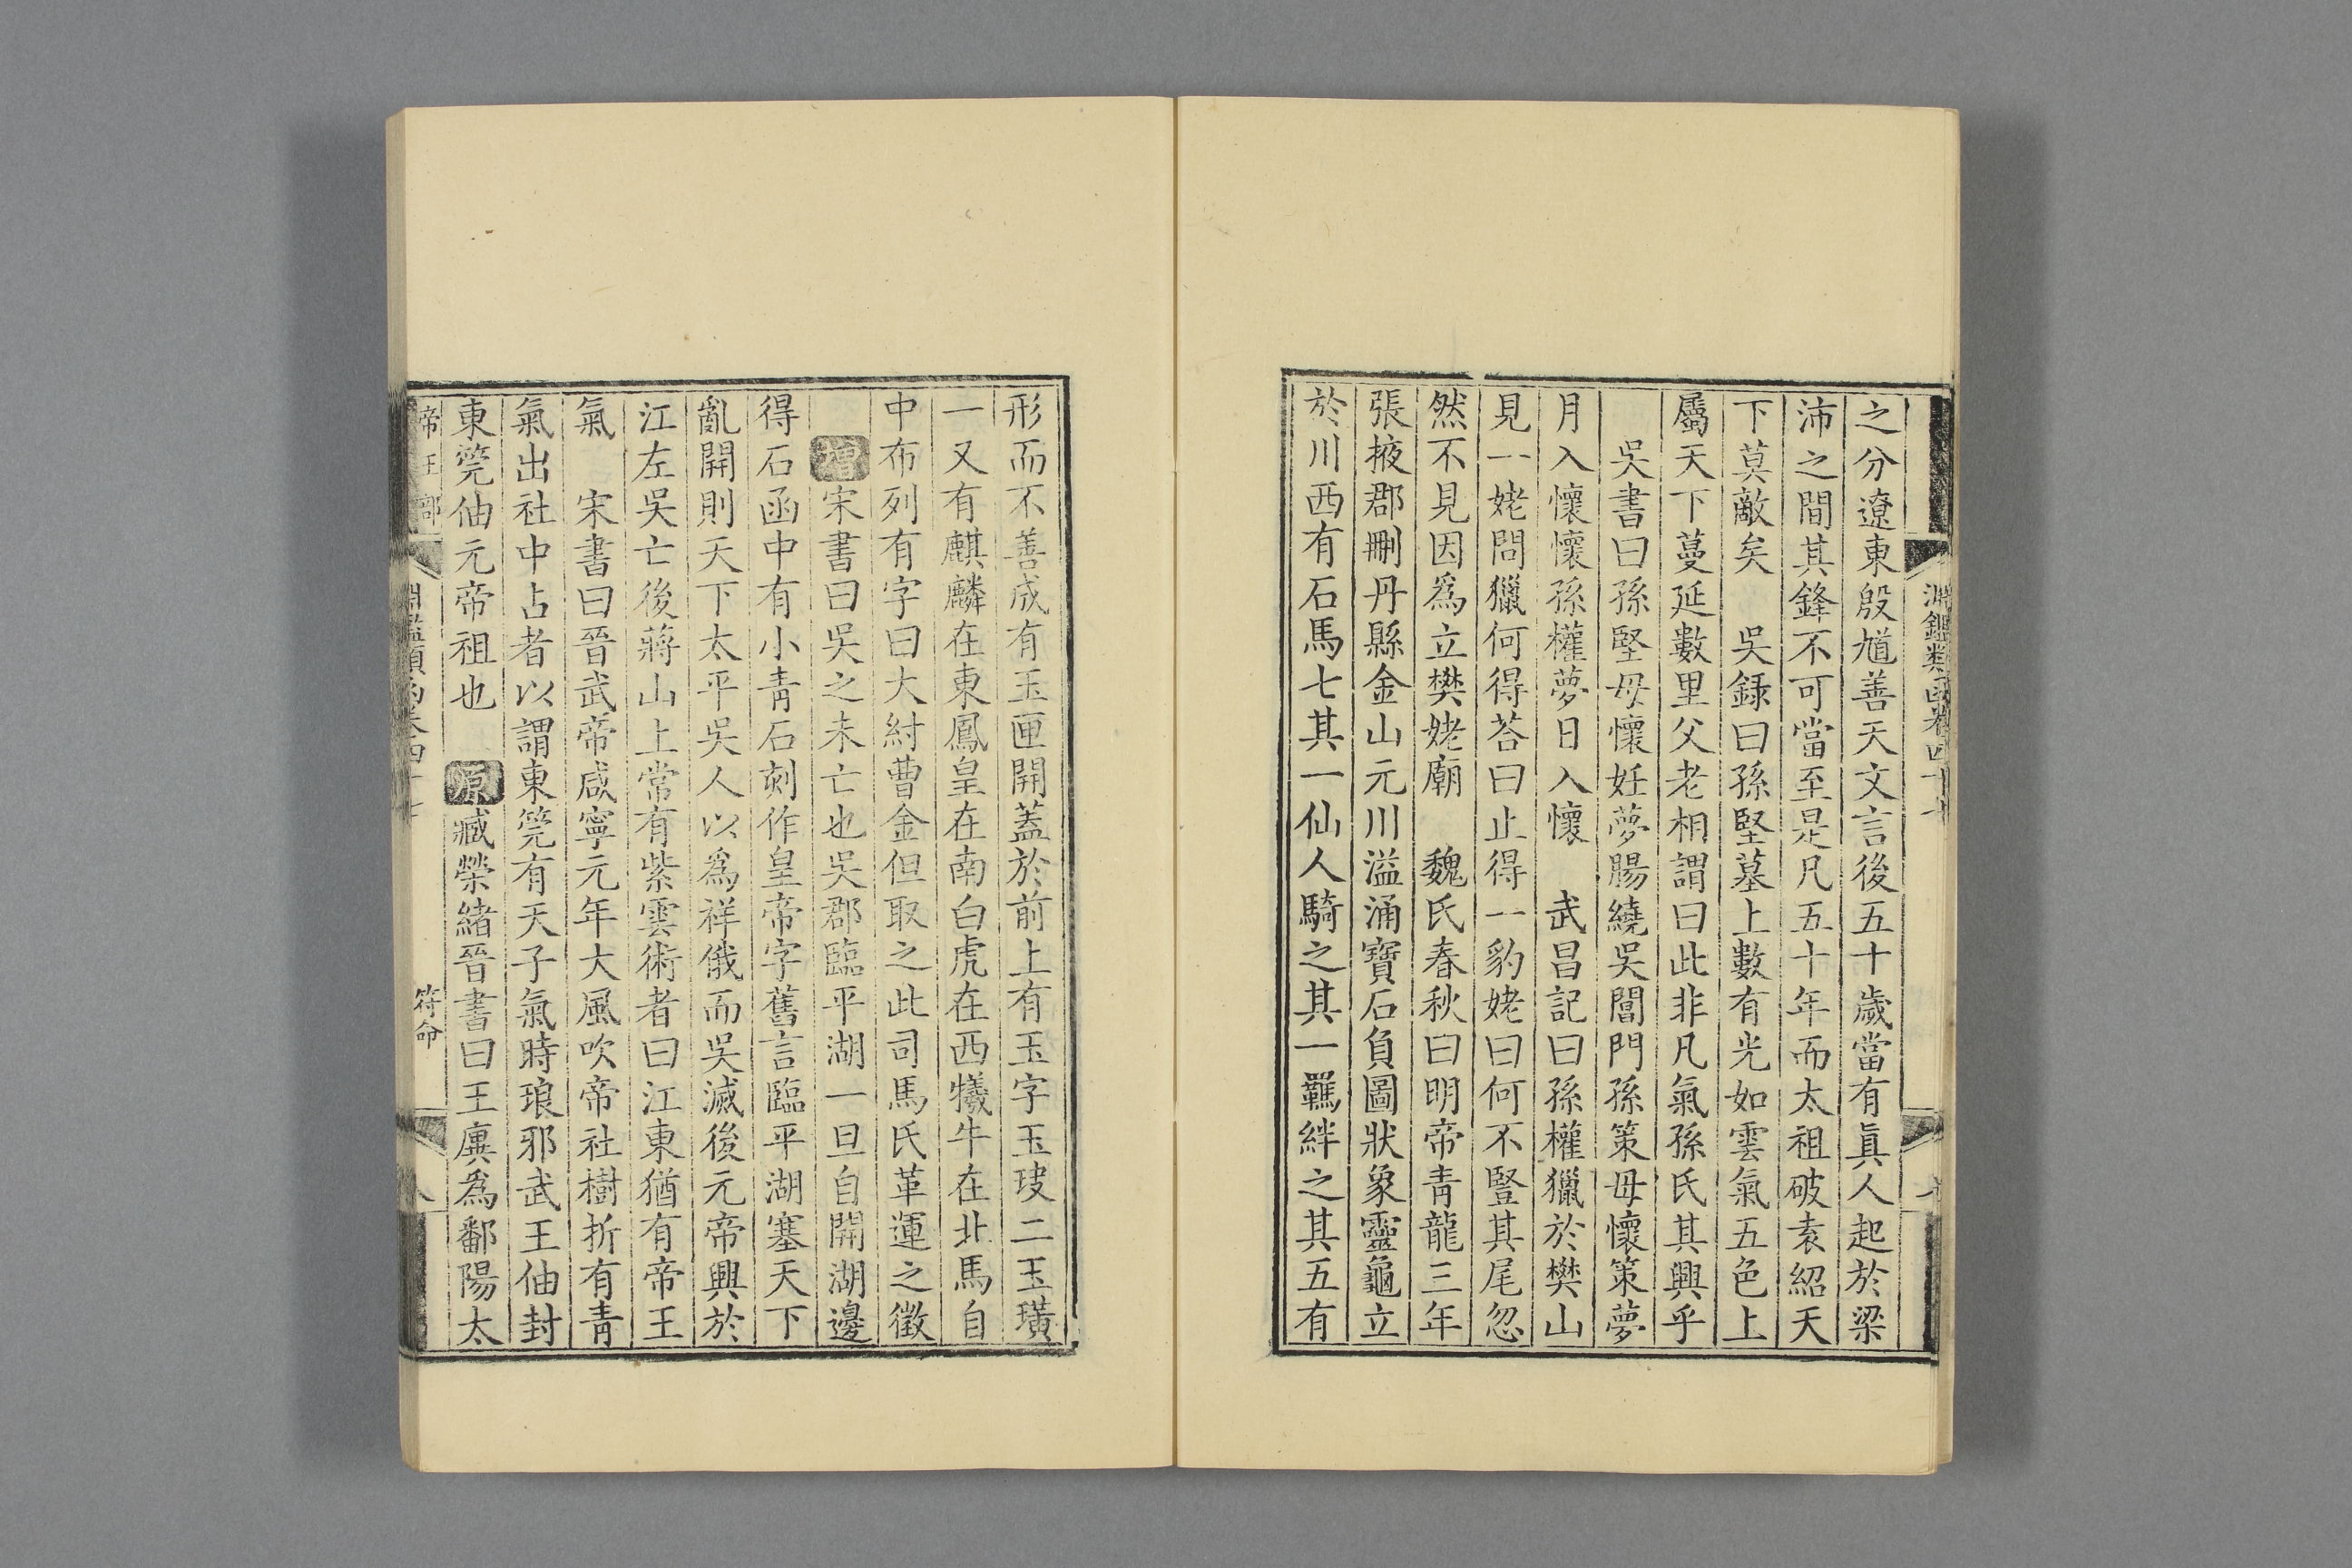 淵鑑類函卷四十七
之分遼東殷馗善天文言後五十歲當有眞人起於梁
沛之間其鋒不可當至是凡五十年而太祖破袁紹天
下莫敵矣　吳録曰孫堅墓上數有光如雲氣五色上
屬天下蔓延數里父老相謂曰此非凡氣孫氏其興乎
吳書曰孫堅母懷妊夢腸繞吳閶門孫策母懷策夢
月入懷懷孫權夢日入懷　武昌記曰孫權獵於樊山
見一姥問獵何得荅曰止得一豹姥曰何不豎其尾忽
然不見因爲立樊姥廟　魏氏春秋曰明帝青龍三年
張掖郡刪丹縣金山元川溢涌寶石負圖狀象靈龜立
於川西有石馬七其一仙人騎之其一羈絆之其五有
形而不善成有玉匣開蓋於前上有玉字玉玦二玉璜
一又有麒麟在東鳳皇在南白虎在西犧牛在北馬自
中布列有字曰大討曹金但取之此司馬氏革運之徵
增宋書曰吳之未亡也吳郡臨平湖一旦自開湖邊
得石函中有小青石刻作皇帝字舊言臨平湖塞天下
亂開則天下太平吳人以爲祥俄而吳滅後元帝興於
江左吳亡後蔣山上常有紫雲術者曰江東猶有帝王
氣　宋書曰晉武帝咸寧元年大風吹帝社樹折有青
氣出社中占者以謂東筦有天子氣時琅邪武王伷封
東筦伷元帝祖也　原臧榮緒晉書曰王廙爲鄱陽太
帝王部　淵鑑類函卷四十七　符命　八